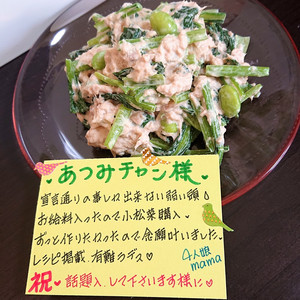 あつみチャン様
宣言通りの事しか出来ない弱い頭
お給料入ったので小松菜購入。
ずっと作りたかったので念願叶いました。
レシピ掲載 有難うデス♡
4人娘
mama
祝・話題入りして下さいます様に♡